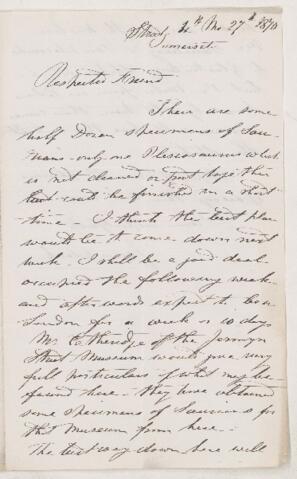 Street 4th Mo. 27th 1870
Somerset.
Respected Friend
There are some
half Dozen specimens of Sau-
rians - only one Plesiosaurus which
is not cleaned or put together this
last could be finished in a short
time - I think the best plan
would be to come down next
week. I shall be a good deal
occupied the following week
and afterwards expect to be in
London for a week or 10 days
Mr Etheridge of the Jermyn
Street Museum would give very
full particulars of what may be
found here - they have obtained
some specimens of Saurians for
that Museum from here -
The best way down here will